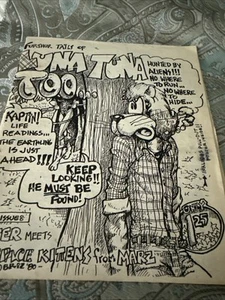 TAILS OF
TUNA TUNA
TOO...
HUNTED BY
ALIENS!!!
NO WHERE
TO RUN...
NO WHERE
TO
HIDE...
KAPTIN!
LIFE
READINGS...
THE EARTHLING
IS JUST
AHEAD!!!
KEEP
LOOKING!!
HE MUST BE
FOUND!
ISSUE
MEETS
KITENS from MARZ
25¢